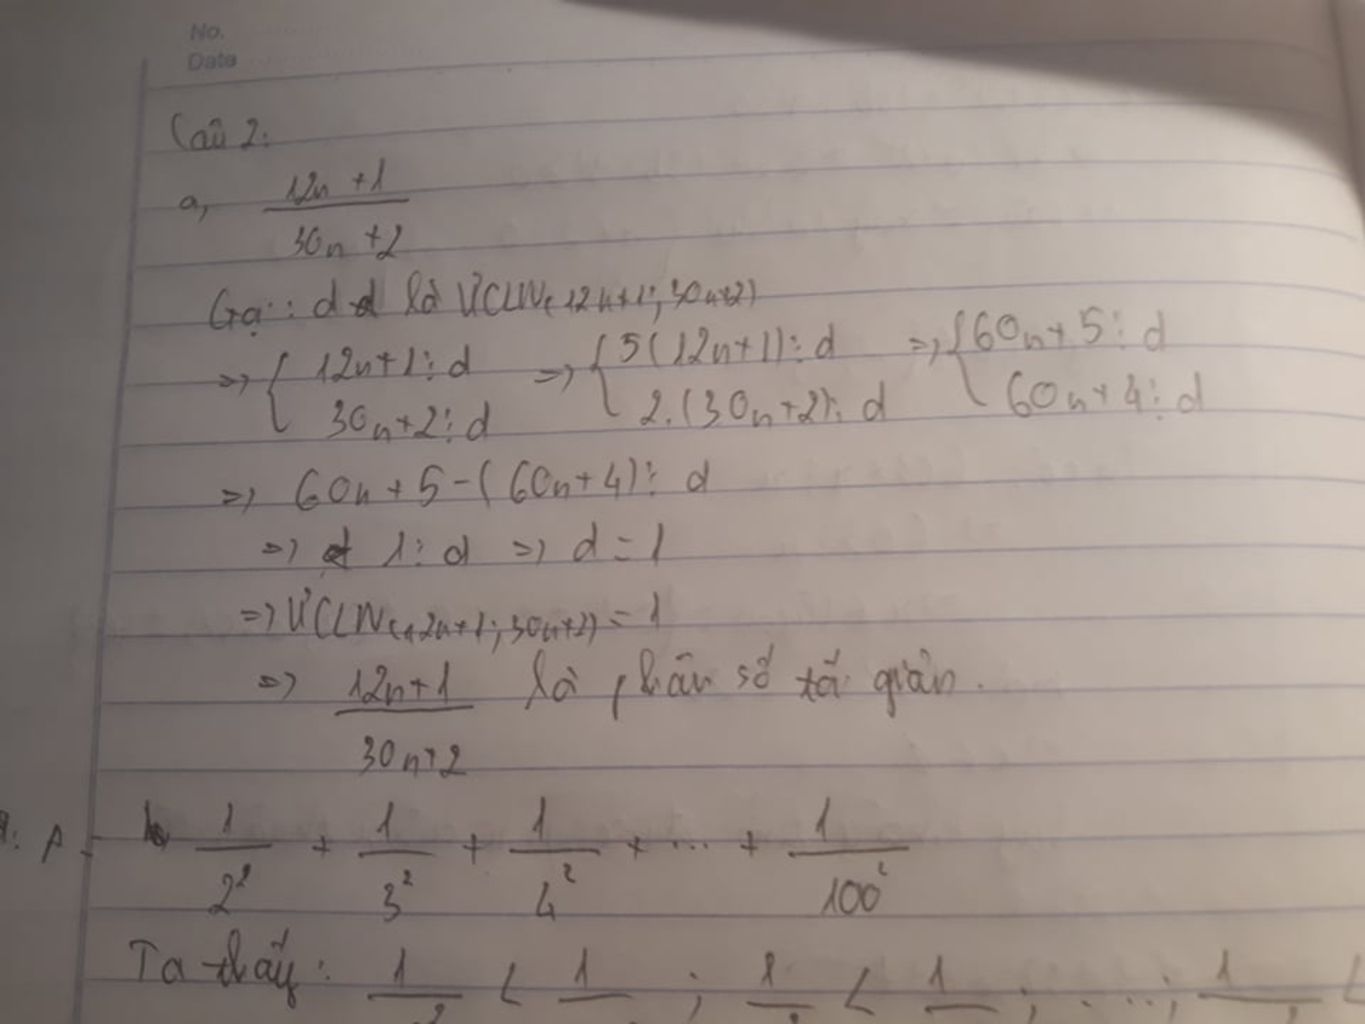 No.
Date
Câu 2:
a, 12n+1 / 30n+2
Gọi: d là ƯCLN(12n+1; 30n+2)
=> { 12n+1 ⋮ d => { 5(12n+1) ⋮ d => { 60n+5 ⋮ d
30n+2 ⋮ d 2.(30n+2) ⋮ d 60n+4 ⋮ d
=> 60n+5-(60n+4) ⋮ d
=> 1 ⋮ d => d = 1
=> ƯCLN(12n+1; 30n+2) = 1
=> 12n+1 / 30n+2 là phân số tối giản.
A = 1/2² + 1/3² + 1/4² + ... + 1/100²
Ta thấy: 1 < 1 ; 1 < 1 ; ...; 1 <